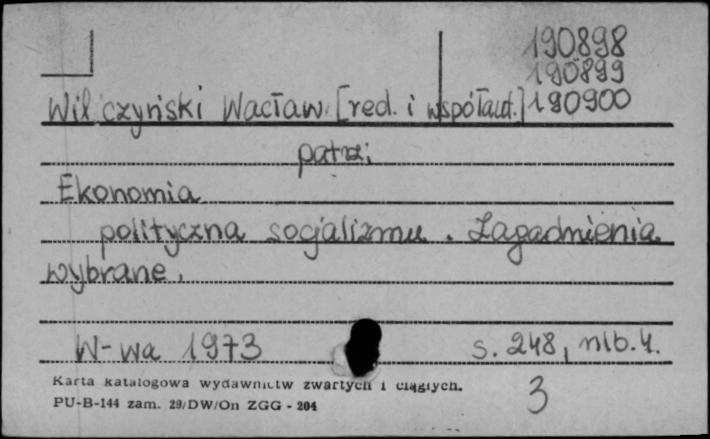 190898
190899
Wilczyński Wacław [red. i współaut.] 190900
patrz:
Ekonomia
polityczna socjalizmu. Zagadnienia
wybrane.
W-wa 1973 s. 248, nlb. 4.
Karta katalogowa wydawnictw zwartych i ciągłych.
3
PU-B-144 zam. 29/DW/On ZGG - 204